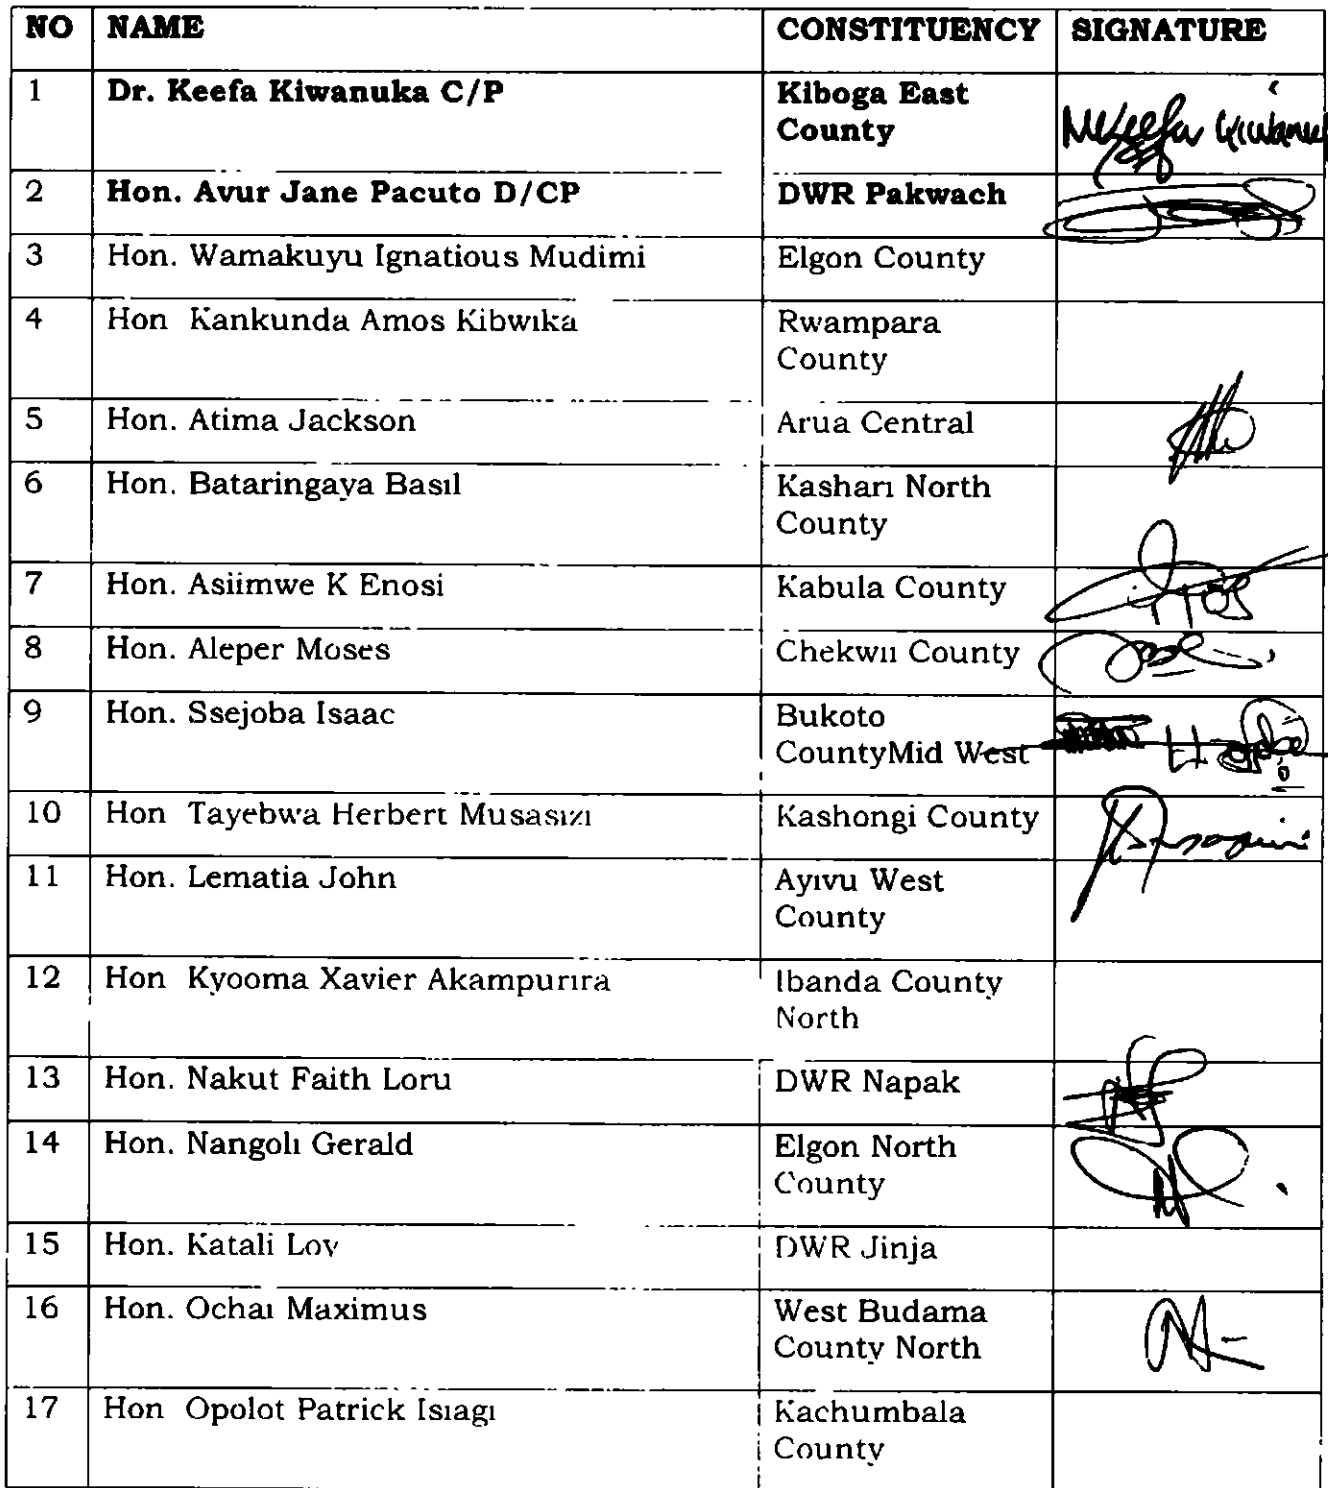 NO NAME CONSTITUENCY SIGNATURE
1 Dr. Keefa Kiwanuka C/P Kiboga East
County
2 Hon. Avur Jane Pacuto D/CP DWR Pakwach
3 Hon. Wamakuyu Ignatious Mudimi Elgon County
4 Hon Kankunda Amos Kibwika Rwampara
County
5 Hon. Atima Jackson Arua Central
6 Hon. Bataringaya Basil Kashari North
County
7 Hon. Asiimwe K Enosi Kabula County
8 Hon. Aleper Moses Chekwii County
9 Hon. Ssejoba Isaac Bukoto
CountyMid West
10 Hon Tayebwa Herbert Musasizi Kashongi County
11 Hon. Lematia John Ayivu West
County
12 Hon Kyooma Xavier Akampurira Ibanda County
North
13 Hon. Nakut Faith Loru DWR Napak
14 Hon. Nangoli Gerald Elgon North
County
15 Hon. Katali Loy DWR Jinja
16 Hon. Ochai Maximus West Budama
County North
17 Hon Opolot Patrick Isiagi Kachumbala
County